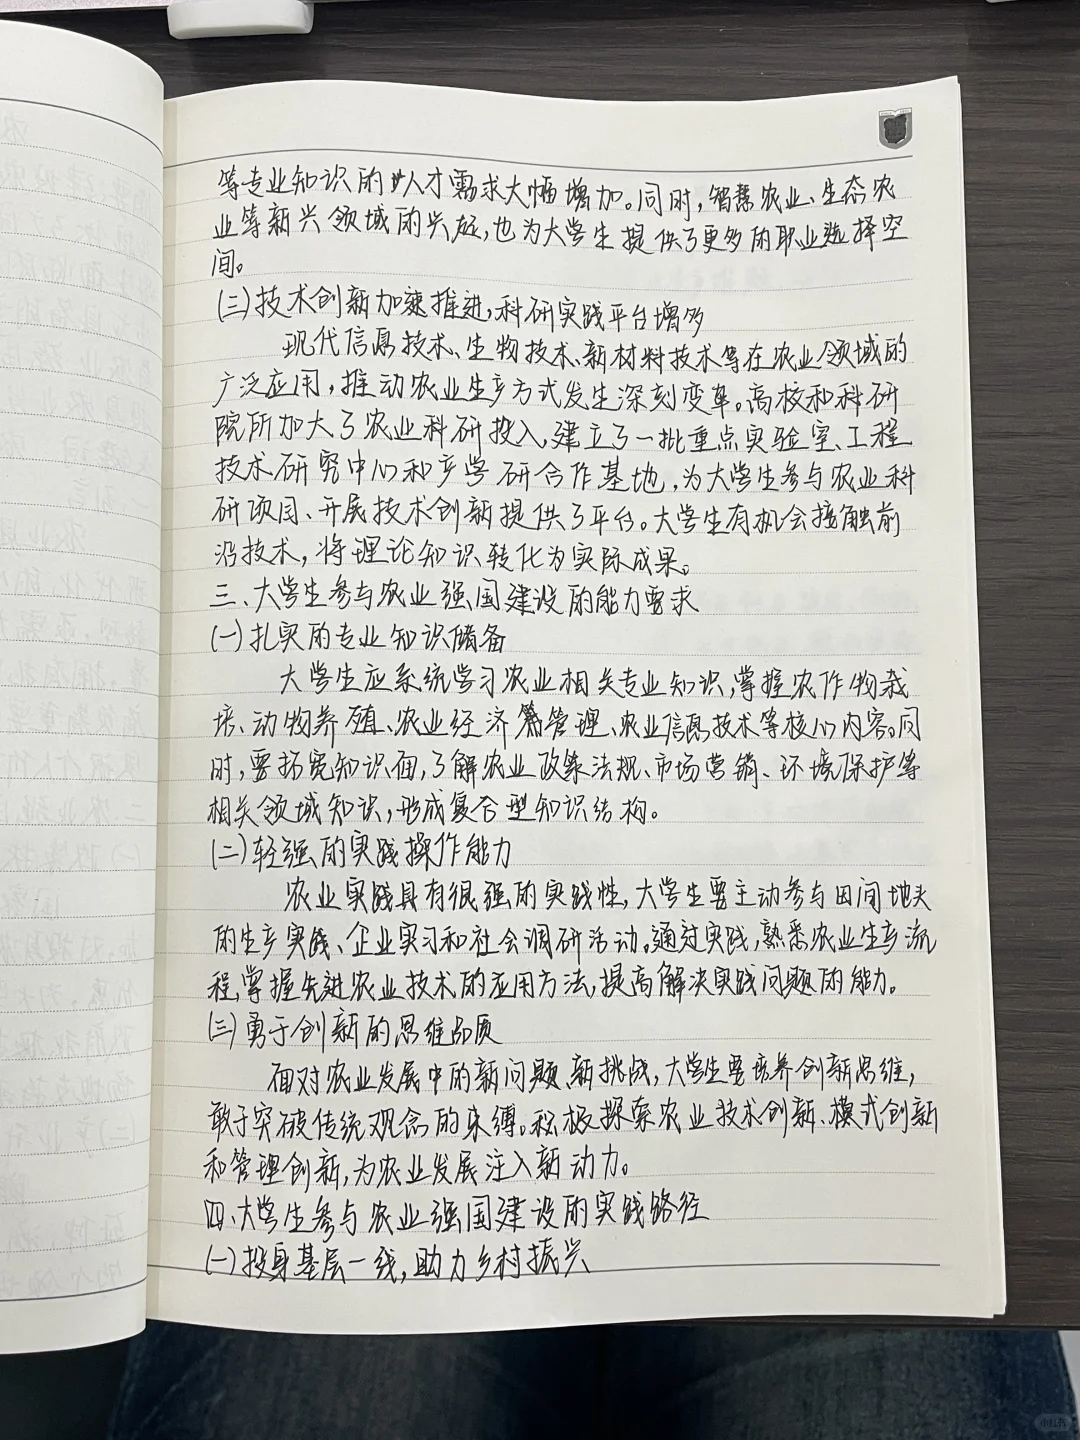 等专业知识的人才需求大幅增加。同时，智慧农业、生态农
业等新兴领域的兴起，也为大学生提供了更多的职业选择空
间。
(三)技术创新加速推进，科研实践平台增多
现代信息技术、生物技术、新材料技术等在农业领域的
广泛应用，推动农业生产方式发生深刻变革。高校和科研
院所加大了农业科研投入，建立了一批重点实验室、工程
技术研究中心和产学研合作基地，为大学生参与农业科
研项目、开展技术创新提供了平台。大学生有机会接触前
沿技术，将理论知识转化为实际成果。
三、大学生参与农业强国建设的能力要求
(一)扎实的专业知识储备
大学生应系统学习农业相关专业知识，掌握农作物栽
培、动物养殖、农业经济管理、农业信息技术等核心内容。同
时，要拓宽知识面，了解农业政策法规、市场营销、环境保护等
相关领域知识，形成复合型知识结构。
(二)较强的实践操作能力
农业实践具有很强的实践性，大学生要主动参与田间地头
的生产实践、企业实习和社会调研活动。通过实践，熟悉农业生产流
程，掌握先进农业技术的应用方法，提高解决实践问题的能力。
(三)勇于创新的思维品质
面对农业发展中的新问题、新挑战，大学生要培养创新思维，
敢于突破传统观念的束缚。积极探索农业技术创新、模式创新
和管理创新，为农业发展注入新动力。
四、大学生参与农业强国建设的实践路径
(一)投身基层一线，助力乡村振兴
小红书